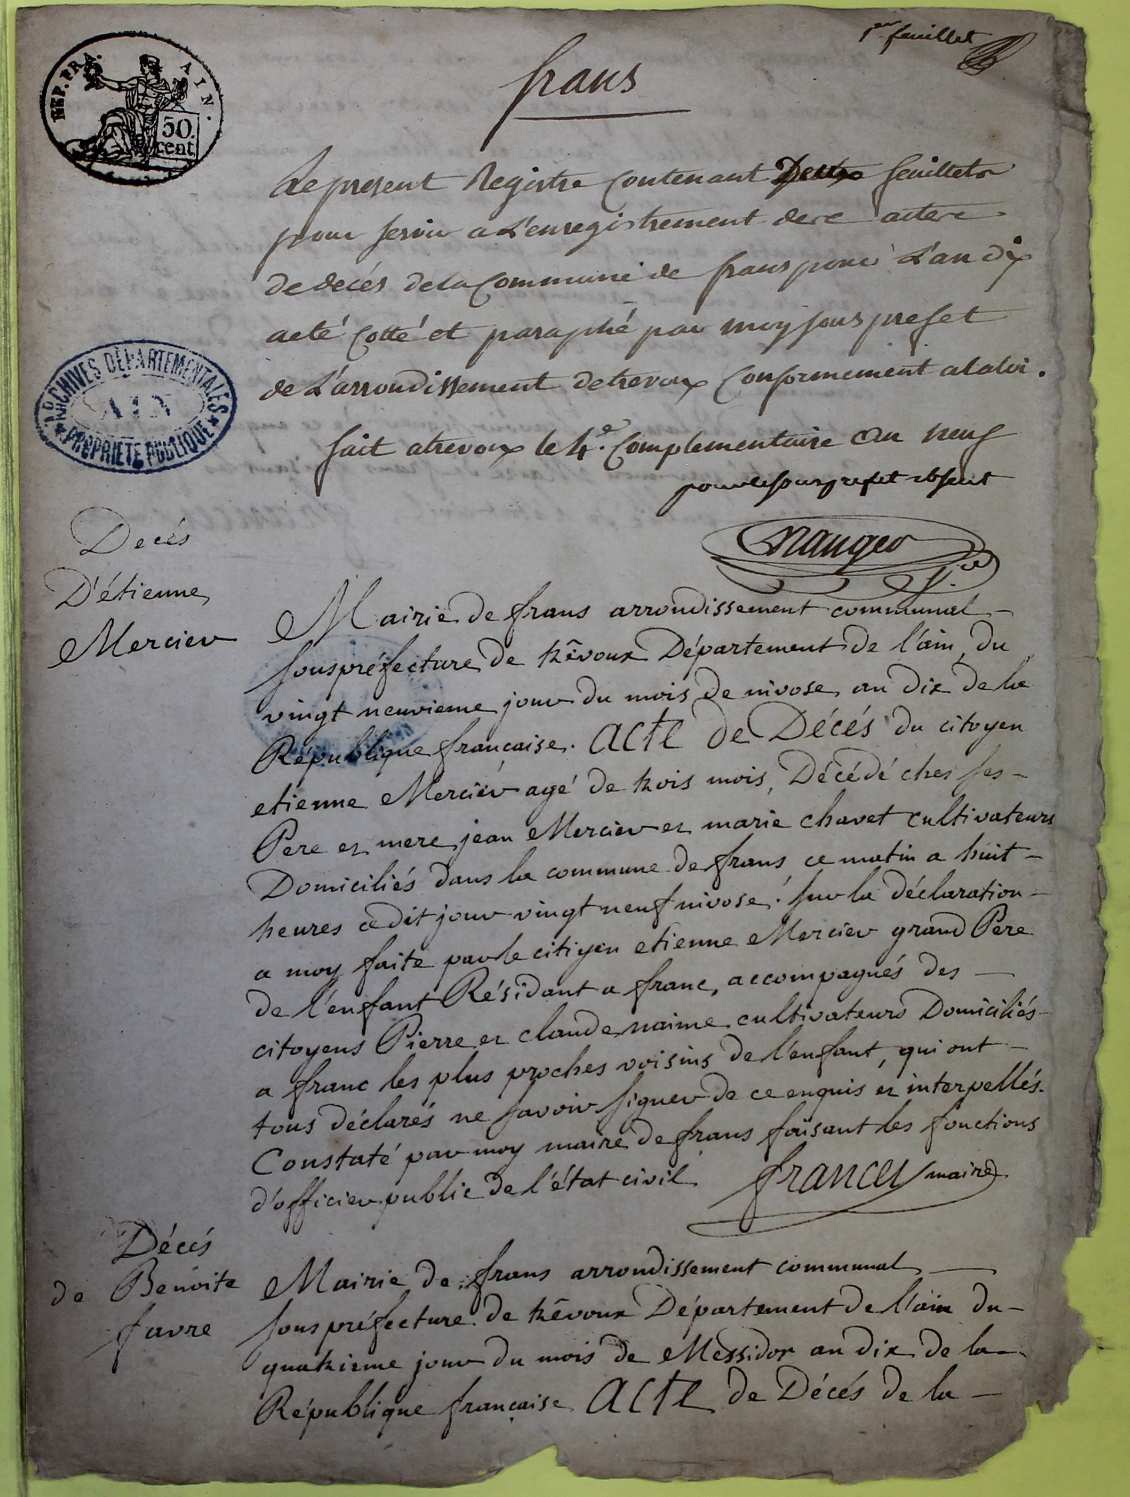 1er feuillet
REP. FRA. AIN.
50.
cent
frans
Le present Registre Contenant Deux feuillets
pour servir a L'enregistrement dece actere
de decés dela Commune de frans pour L'an dix
acté Cotté et paraphé par moy sous prefet
de L'arrondissement de trevoux Conformement a la loi.
ARCHIVES DÉPARTEMENTALES
AIN
PROPRIÉTÉ PUBLIQUE
fait a trevoux le 4e. Complementaire an neuf
pour le sous prefet absent
Decés
D'étienne
Mercier
Mairie de frans arrondissement communal
souspréfecture de trêvoux Département de l'ain, du
vingt neuvieme jour du mois de nivose, an dix de la
République française. Acte de Décés du citoyen
etienne Mercier agé de trois mois, Décédé ches ses
Pere et mere jean Mercier et marie chavet cultivateurs
Domiciliés dans la commune de frans ce matin a huit
heures cedit jour vingt neuf nivose. sur la déclaration
a moy faite par le citoyen etienne Mercier grand Pere
de l'enfant Résidant a franc, accompagnés des
citoyens Pierre et claude naime cultivateurs Domiciliés
a franc les plus proches voisins de l'enfant, qui ont
tous déclarés ne savoir signer de ce enquis et interpellés.
Constaté par moy maire de frans faisant les fonctions
d'officier public de l'état civil. francey maire
Décés
de Benoite
favre
Mairie de frans arrondissement communal
souspréfecture de trêvoux Département de l'ain du
quatrieme jour du mois de Messidor an dix de la
République française Acte de Décés de la